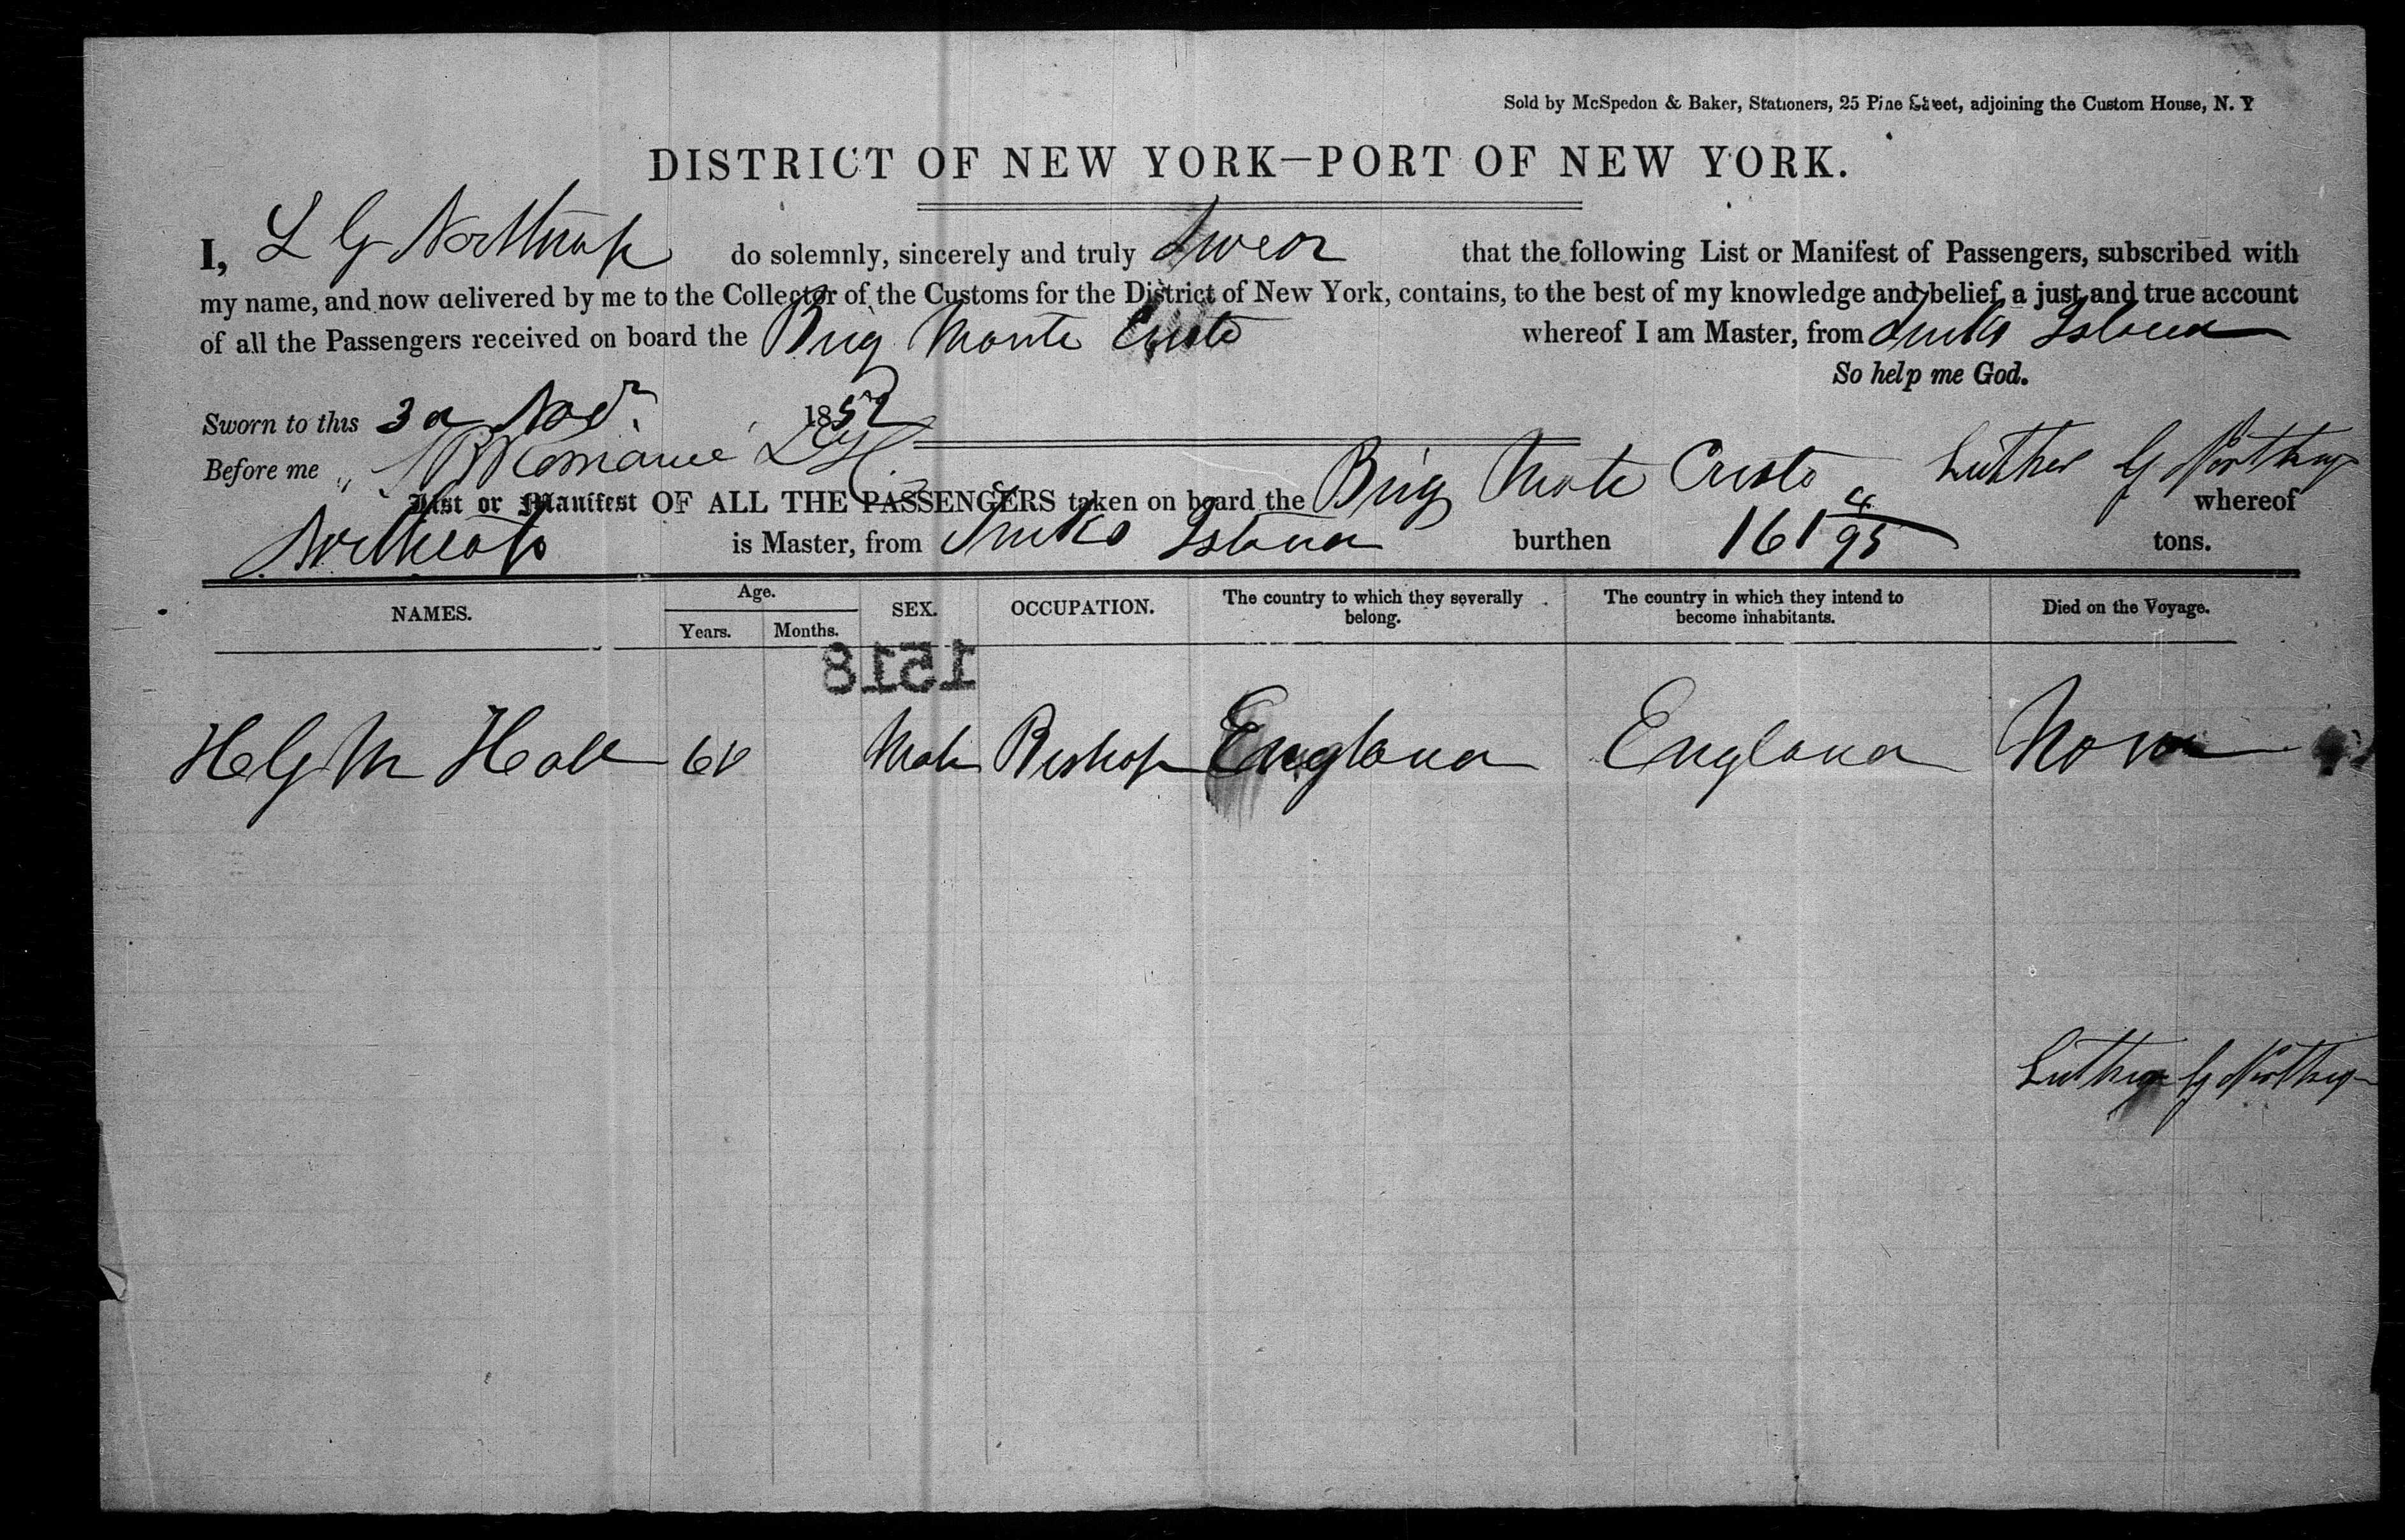 Sold by McSpedon & Baker, Stationers, 25 Pine Street, adjoining the Custom House, N. Y
DISTRICT OF NEW YORK—PORT OF NEW YORK.
I, L G Northrop do solemnly, sincerely and truly Swear that the following List or Manifest of Passengers, subscribed with
my name, and now delivered by me to the Collector of the Customs for the District of New York, contains, to the best of my knowledge and belief, a just and true account
of all the Passengers received on board the Brig Monte Cristo whereof I am Master, from Turks Island
So help me God.
Sworn to this 3d Novr. 1852
Before me
Luther G Northrop
List or Manifest OF ALL THE PASSENGERS taken on board the Brig Monte Cristo whereof
Northrop is Master, from Turks Island burthen 161 4/95 tons.
NAMES. Age. Years. Months. SEX. OCCUPATION. The country to which they severally belong. The country in which they intend to become inhabitants. Died on the Voyage.
1518
H G M Hall Male Bishop England England None
Luther G Northrop